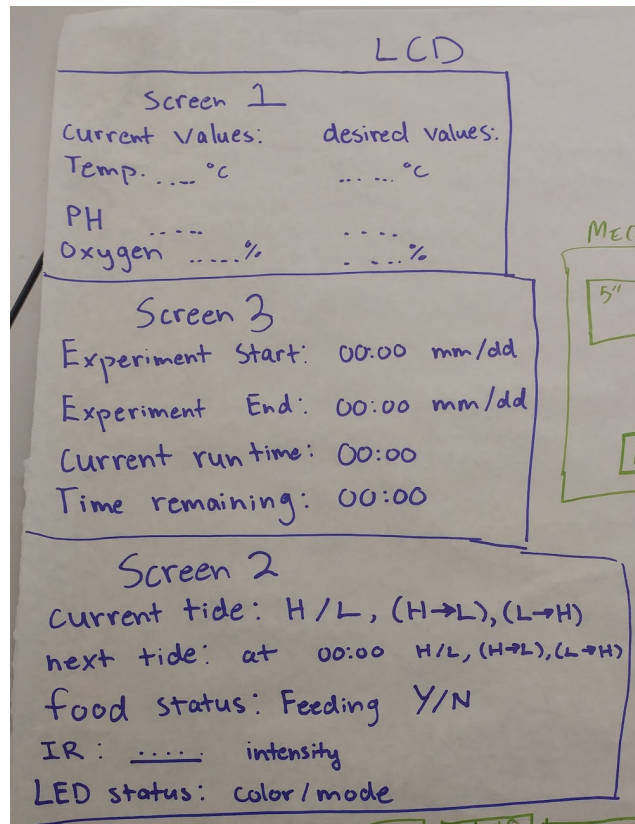 LCD
Screen 1
Current Values: desired values:
Temp. ..... °C ..... °C
PH ..... ....
Oxygen .....% .....%
MEC
5"
Screen 3
Experiment Start: 00:00 mm/dd
Experiment End: 00:00 mm/dd
Current run time: 00:00
Time remaining: 00:00
Screen 2
Current tide: H/L, (H→L), (L→H)
next tide: at 00:00 H/L, (H→L), (L→H)
food status: Feeding Y/N
IR: ..... intensity
LED status: color/mode